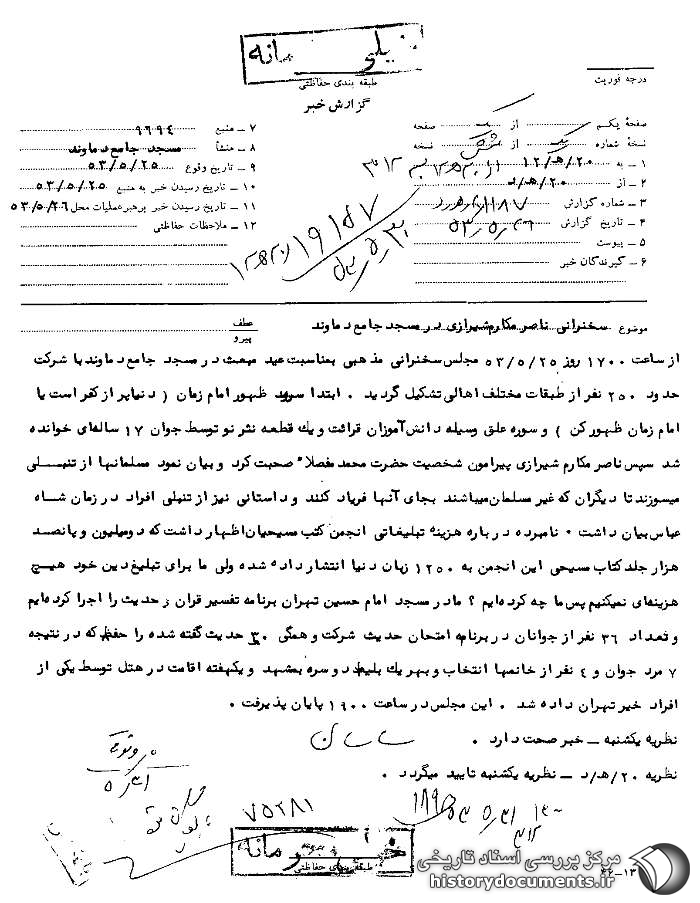 خیلی محرمانه
طبقه بندی حفاظتی
گزارش خبر
درجه فوریت
صفحهٔ یکم از یک صفحه
نسخهٔ شماره یک از شش نسخه
۱ – به ۱۲/ه‍/۲۰
۲ – از ۲۰/ه‍/د
۳ – شماره گزارش
۴ – تاریخ گزارش ۵۳/۵/۲۶
۵ – پیوست
۶ – گیرندگان خبر
۷ – منبع ۹۶۹۴
۸ – منشأ مسجد جامع دماوند
۹ – تاریخ وقوع ۵۳/۵/۲۵
۱۰ – تاریخ رسیدن خبر به منبع ۵۳/۵/۲۵
۱۱ – تاریخ رسیدن خبر برهبرعملیات محل ۵۳/۵/۲۶
۱۲ – ملاحظات حفاظتی
۱۹۱۵۷
موضوع سخنرانی ناصر مکارم شیرازی در مسجد جامع دماوند
عطف
پیرو
از ساعت ۱۷۰۰ روز ۵۳/۵/۲۵ مجلس سخنرانی مذهبی بمناسبت عید مبعث در مسجد جامع دماوند با شرکت
حدود ۲۵۰ نفر از طبقات مختلف اهالی تشکیل گردید . ابتدا سرود ظهور امام زمان ( دنیا پر از کفر است یا
امام زمان ظهور کن ) و سوره علق وسیله دانش‌آموزان قرائت و یك قطعه نثر نو توسط جوان ۱۷ ساله‌ای خوانده
شد سپس ناصر مکارم شیرازی پیرامون شخصیت حضرت محمد مفصلا" صحبت کرد و بیان نمود مسلمانها از تنبلی
میسوزند تا دیگران که غیر مسلمان میباشند بجای آنها فریاد کنند و داستانی نیز از تنبلی افراد در زمان شاه
عباس بیان داشت . نامبرده درباره هزینه تبلیغاتی انجمن کتب مسیحیان اظهار داشت که دومیلیون و پانصد
هزار جلد کتاب مسیحی این انجمن به ۱۲۵۰ زبان دنیا انتشار داده شده ولی ما برای تبلیغ دین خود هیچ
هزینه‌ای نمیکنیم پس ما چه کرده‌ایم ؟ مادر مسجد امام حسین تهران برنامه تفسیر قران و حدیث را اجرا کرده‌ایم
و تعداد ۳۶ نفر از جوانان در برنامه امتحان حدیث شرکت و همگی ۳۰ حدیث گفته شده را حفظ که در نتیجه
۷ مرد جوان و ۴ نفر از خانمها انتخاب و بهر یك بلیط دو سره بمشهد و یکهفته اقامت در هتل توسط یکی از
افراد خیر تهران داده شد . این مجلس در ساعت ۱۹۰۰ پایان پذیرفت .
نظریه یکشنبه – خبر صحت دارد .
نظریه ۲۰/ه‍/د – نظریه یکشنبه تایید میگردد .
۷۵۲۸۱
خیلی محرمانه
طبقه بندی حفاظتی
مرکز بررسی اسناد تاریخی
historydocuments.ir